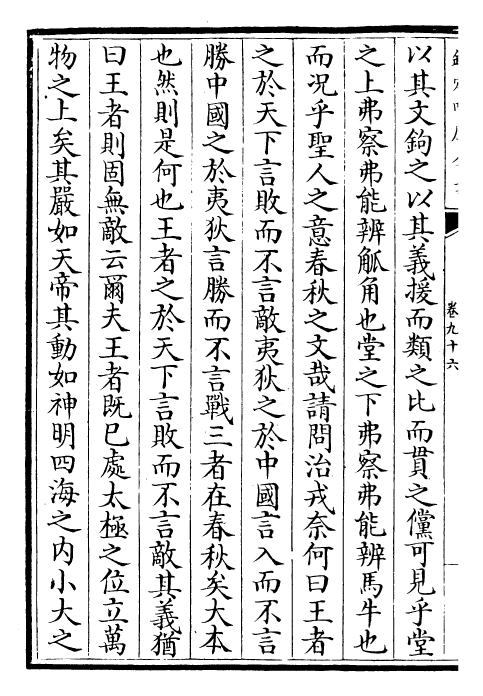 以其文鉤之以其義援而類之比而貫之儻可見乎堂
之上弗察弗能辨觚角也堂之下弗察弗能辨馬牛也
而况乎聖人之意春秋之文哉請問治戎奈何曰王者
之於天下言敗而不言敵夷狄之於中國言入而不言
勝中國之於夷狄言勝而不言戰三者在春秋矣大本
也然則是何也王者之於天下言敗而不言敵其義猶
曰王者則固無敵云爾夫王者既已處太極之位立萬
物之上矣其嚴如天帝其動如神明四海之内小大之
卷九十六